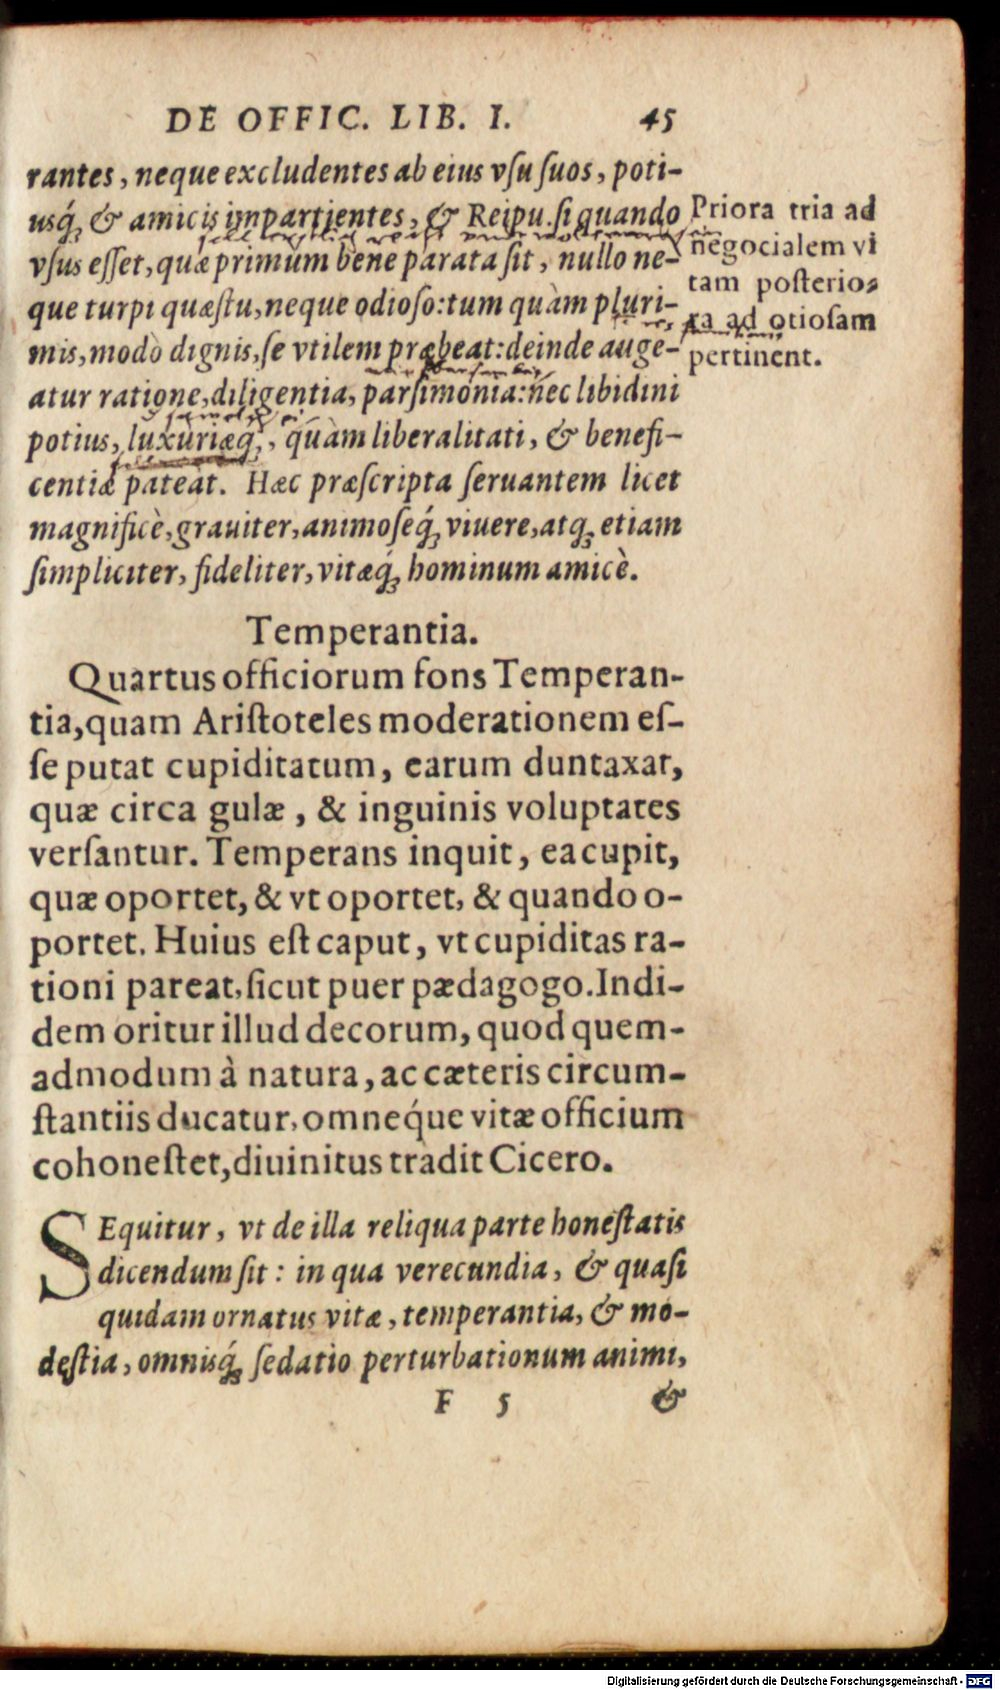 DE OFFIC. LIB. I. 45
rantes, neque excludentes ab eius vsu suos, poti-
usq́; & amicis impartientes, & Reipu. si quando
vsus esset, quæ primum bene parata sit, nullo ne-
que turpi quæstu, neque odioso: tum quàm pluri-
mis, modò dignis, se vtilem præbeat: deinde auge-
atur ratione, diligentia, parsimonia: nec libidini
potius, luxuriæq́;, quàm liberalitati, & benefi-
centiæ pateat. Hæc præscripta seruantem licet
magnificè, grauiter, animoseq́; viuere, atq; etiam
simpliciter, fideliter, vitæq́; hominum amicè.
Priora tria ad
negocialem vi
tam posterio-
ra ad otiosam
pertinent.
Temperantia.
Quartus officiorum fons Temperan-
tia, quam Aristoteles moderationem es-
se putat cupiditatum, earum duntaxat,
quæ circa gulæ, & inguinis voluptates
versantur. Temperans inquit, ea cupit,
quæ oportet, & vt oportet, & quando o-
portet. Huius est caput, vt cupiditas ra-
tioni pareat, sicut puer pædagogo. Indi-
dem oritur illud decorum, quod quem-
admodum à natura, ac cæteris circum-
stantiis ducatur, omneq́ue vitæ officium
cohonestet, diuinitus tradit Cicero.
SEquitur, vt de illa reliqua parte honestatis
dicendum sit: in qua verecundia, & quasi
quidam ornatus vitæ, temperantia, & mo-
destia, omnisq́; sedatio perturbationum animi,
F 5 &
Digitalisierung gefördert durch die Deutsche Forschungsgemeinschaft - DFG